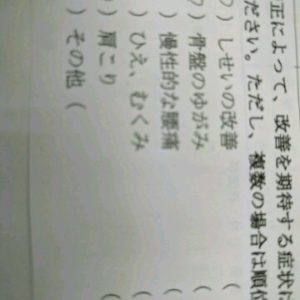 正によって、改善を期待する症状に
ださい。ただし、複数の場合は順位
）しせいの改善（
）骨盤のゆがみ（
）慢性的な腰痛（
）ひえ、むくみ（
）肩こり（
）その他（